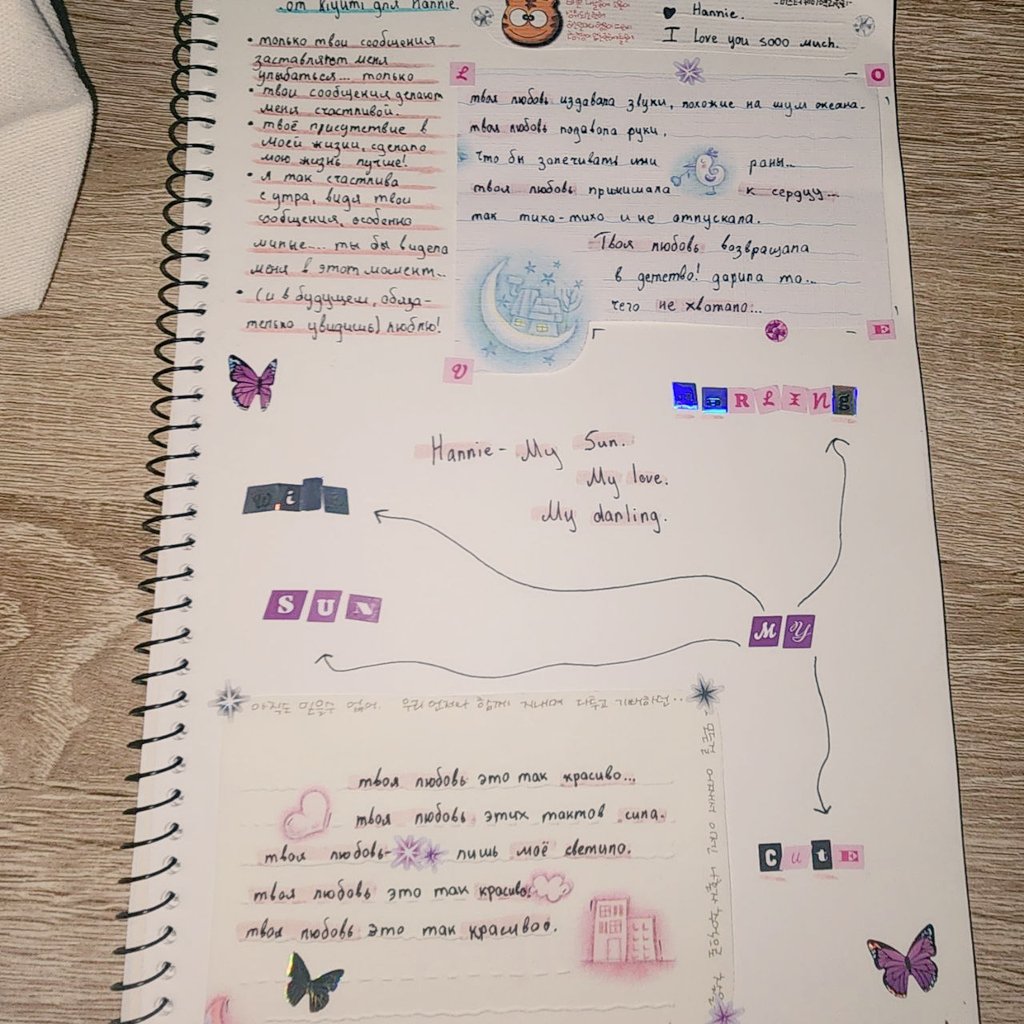 от Kiyumi для Hannie.
• только твои сообщения
заставляют меня
улыбаться... только
• твои сообщения делают
меня счастливой.
• твоё присутствие в
моей жизни, сделало
мою жизнь лучше!
• я так счастлива
с утра, видя твои
сообщения, особенно
милые... ты бы видела
меня в этот момент...
• (и в будущем, обяза-
тельно увидишь) люблю!
Hannie.
I love you sooo much.
L
O
твоя любовь издавала звуки, похожие на шум океана.
твоя любовь подавала руки.
что бы залечивать мои раны...
твоя любовь прижимала к сердцу...
так тихо-тихо и не отпускала.
Твоя любовь возвращала
в детство! дарила то...
чего не хватало...
V
E
DARLING
Hannie - My Sun.
My love.
My darling.
SUN
MY
CUTE
아직은 믿을수 없어. 우리 언제나 함께 지내며
твоя любовь это так красиво...
твоя любовь этих тактов сила.
твоя любовь- лишь моё светило.
твоя любовь это так красиво!
твоя любовь это так красивоо.